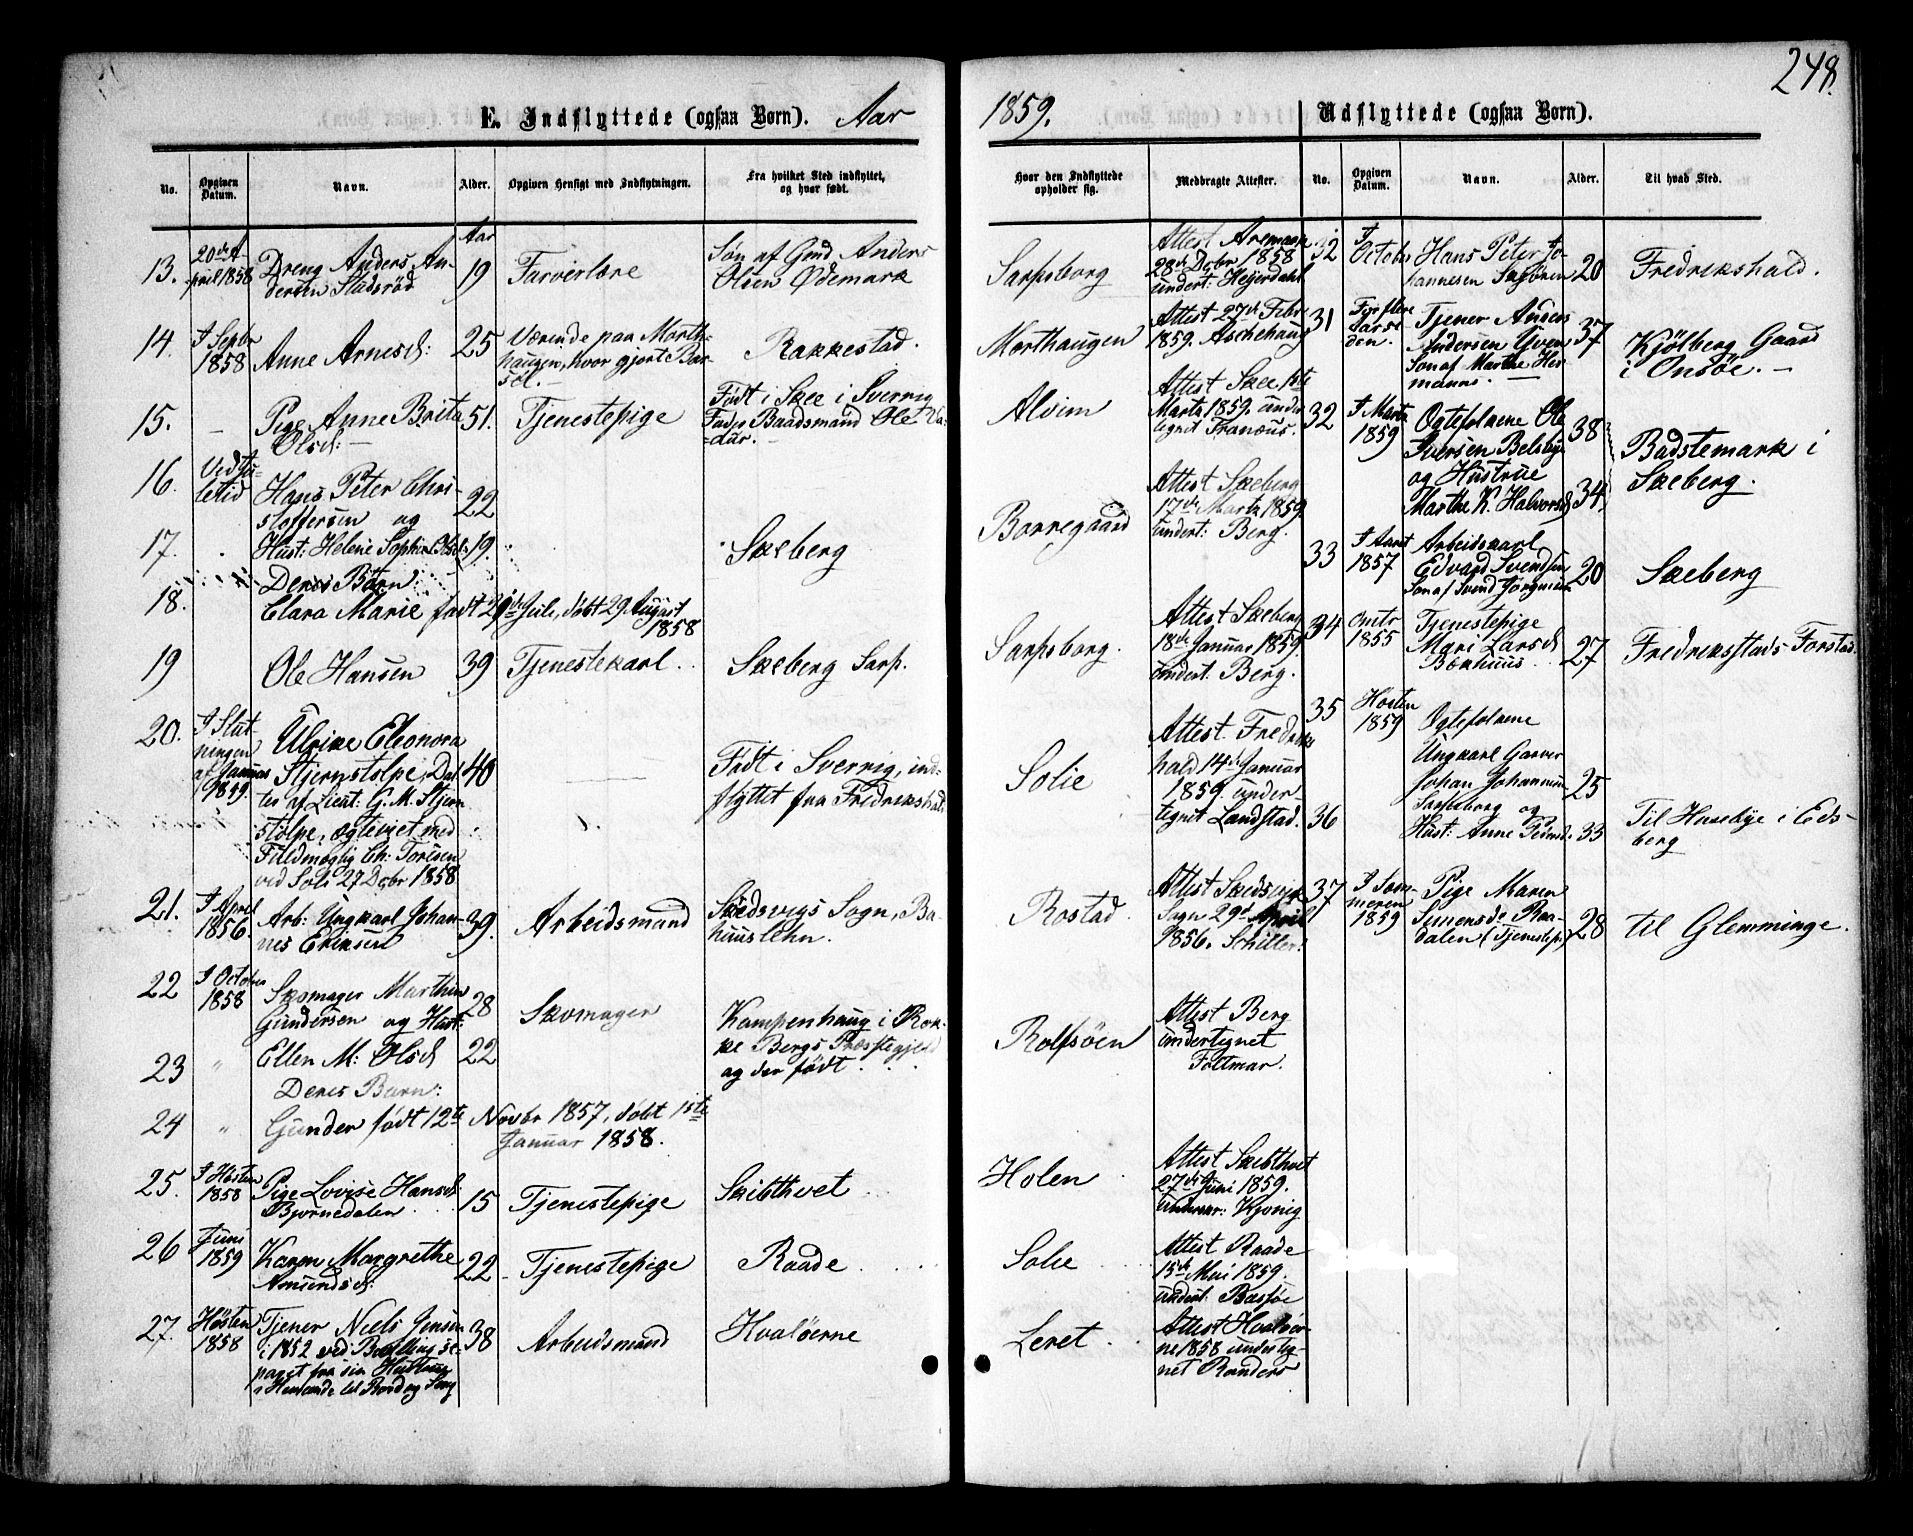 248.
E. Indflyttede (ogsaa Børn). Aar 1859. Udflyttede (ogsaa Børn).
No.
Opgiven Datum.
Navn.
Alder.
Opgiven Hensigt med Indflytningen.
Fra hvilket Sted indflyttet, og hvor født.
Hvor den Indflyttede opholder sig.
Medbragte Attester.
No.
Opgiven Datum.
Navn.
Alder.
Til hvad Sted.
13. 20de April 1858
Dreng Anders Andersen
Aar 19 Farverlære
Søn af Gmd Anders
Olsen Ødemark
Sarpsborg
Attest Aremark
28de Decbr 1858
undert: Hejerdahl
14. I Septr 1858
Anne Arnesd: 25
Værende paa Morthaugen, hvor gjort Barsel.
Rakkestad.
Morthaugen
Attest 27de Febr
1859. Aschehaug
15. —
Pige Anne Brita
Olsd: — 51. Tjenestepige
Født i Skee i Sverrig
Fader Baadsmand Ole
Alvim
Attest Skee 1ste
Marts 1859. undertegnet Franæus.
16. Ved Juletid
Hans Peter Christoffersen og 22
17.
Hust: Helene Sophie Olsd. 19.
Skeberg
Borregaard
Attest Skeberg
17de Marts 1859
undert: Berg.
Deres Barn:
18. Clara Marie født 29de Juli, døbt 29. August
1858
19 Ole Hansen 39 Tjenestekarl
Skeberg Sarp.
Sarpsborg.
Attest Skeberg
18de Januar 1859.
undert. Berg.
20. I Slutningen af Januar 1859.
Ulrike Eleonora
Stjernstolpe, Datter af Lieut: G. M. Stjernstolpe, ægteviet med
Fuldmægtig Ch: Toresen
ved Soli 27 Decbr 1858
40
Født i Sverrig, indflyttet fra Fredrikshald
Solie
Attest Fredrikshald 14de Januar
1859. undertegnet Landstad.
21. I April 1856.
Arb: Ungkarl Johannes Eriksen 39. Arbeidsmand
Skedsvigs Sogn, Bahuuslehn.
Rostad.
Attest Skedsvig
Sogn 29de April
1856. Schiller.
22 I October 1858
Skomager Marthin
Gundersen og Hust: 28 Skomager
Kampenhaug i Rokke Bergs Præstegjeld
og der født.
Rolfsöen
Attest Berg
undertegnet
Foltmar.
23 "
Ellen M: Olsd 22
Deres Barn:
24 " Gunder født 12te Novbr 1857, døbt 1ste
Januar 1858.
25. I Høsten 1858
Pige Lovise Hansd
Bjørnedalen 15 Tjenestepige
Skibthvet
Holen
Attest Skibthvet
27de Juni 1859.
26 Juni 1859
Karen Margrethe
Amundsd: 22 Tjenestepige
Raade
Solie
Attest Raade
15de Mai 1859.
undert. Bassøe
27. Høsten 1858
Tjener Niels Jensen
i 1852 ved Bevilling separeret fra sin Hustrue
38 Arbeidsmand
Hvaløerne
Leret
Attest Hvaløerne 1858 undertegnet Randers
32 I October
Hans Peter Johannesen 20 Fredrikshald.
31
Tjener Anders
Andersen Yven
Søn af Marthe Hermanns. 37
Kjølberg Gaard
i Onsöe. —
32 I Marts 1859
Ægtefolkene Ole
Iversen Belsby 38
og Hustrue
Marthe K. Halvorsd 34.
Skeberg.
33 I Aaret 1857
Arbeidskarl
Edvard Svendsen
Søn af Svend Jörgensen 20
Skeberg
34 Omtr 1855
Tjenestepige
Mari Larsd
27 Fredriksstads Forstad.
35 Høsten 1859
Ægtefolkene
Ungkarl Garver
Johan Johannesen 25
Sarpsborg og
36
Hust: Anne Pedersd. 33
Til Hasebye i Edsberg
37 I Sommeren 1859
Pige Maren
Simensd Raadalen (Tjenestep.) 28
til Glemminge.